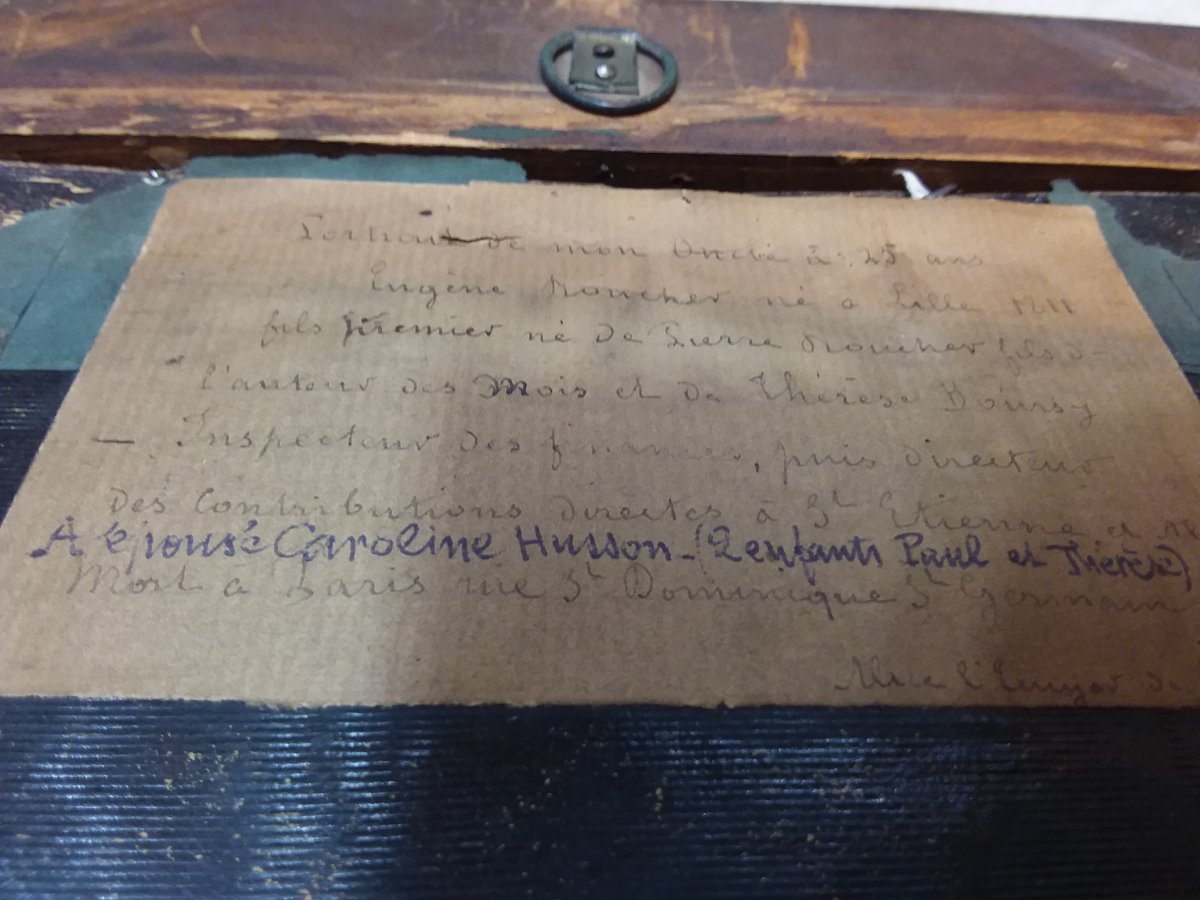 Portrait de mon Oncle à 25 ans
Eugène Roucher né à Lille 1811
fils premier né de Pierre Roucher fils de
l'auteur des Mois et de Thérèse Boursy
— Inspecteur des finances, puis directeur
des Contributions directes à St Etienne et
A épousé Caroline Husson - (2 enfants Paul et Thérèse)
Mort à Paris rue St Dominique St Germain
de